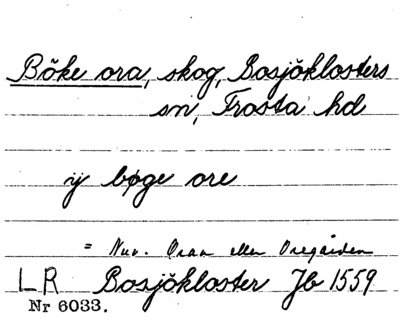 Böke ora, skog, Bosjöklosters
sn, Frosta hd
ij bøge ore
= Nuv. Oran eller Oregården
LR Bosjökloster Jb 1559
Nr 6033.